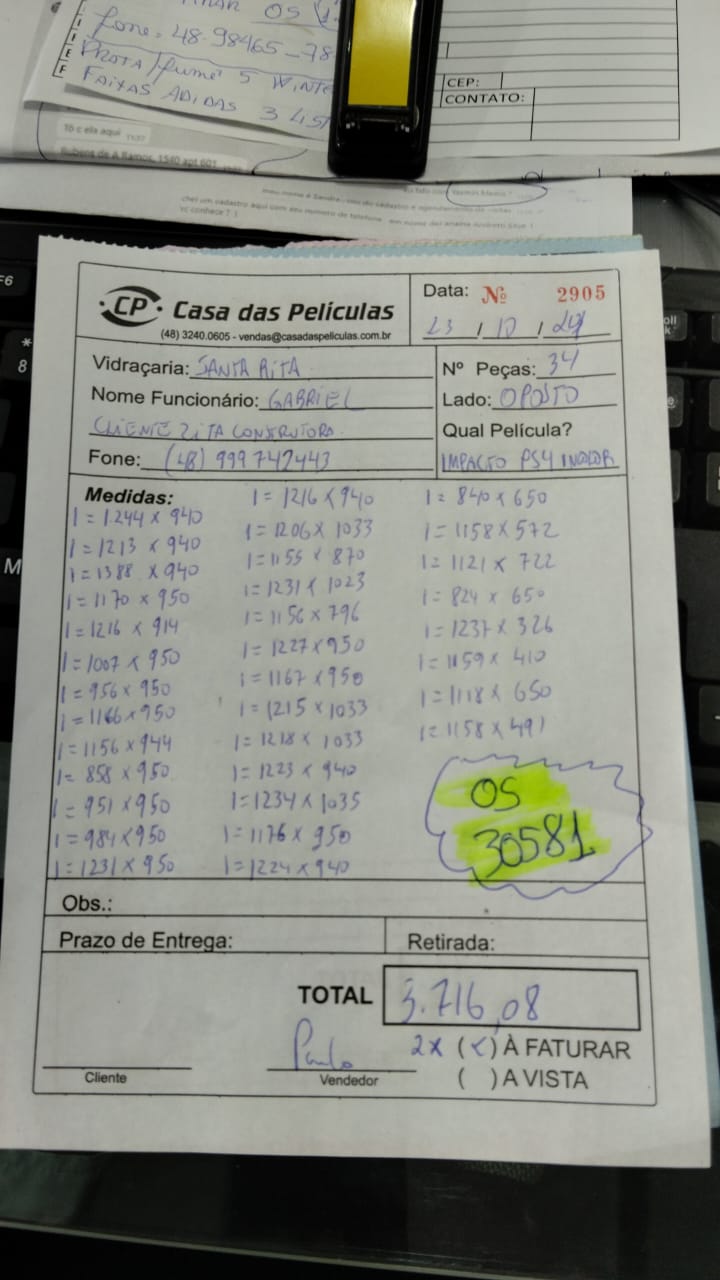 OS
fone. 48.98465-78
PROTA/fumê 5 WINTE
FAIXAS ADIDAS 3 LIST
CEP:
CONTATO:
16 c ela aqui
Rubens de A Ramos, 1540 apt 601
vc conhece ?
CP Casa das Películas
(48) 3240.0605 - vendas@casadaspeliculas.com.br
Data: Nº 2905
23 / 10 / 24
Vidraçaria: SANTA RITA
Nome Funcionário: GABRIEL
CLIENTE ZITA CONSTRUTORA.
Fone: (48) 999742443
Nº Peças: 34
Lado: OPOSTO
Qual Película?
IMPACTO PS4 INCOLOR
Medidas:
1 = 1244 x 940
1 = 1213 x 940
1 = 1388 x 940
1 = 1170 x 950
1 = 1216 x 914
1 = 1007 x 950
1 = 956 x 950
1 = 1166 x 950
1 = 1156 x 944
1 = 858 x 950
1 = 951 x 950
1 = 984 x 950
1 = 1231 x 950
1 = 1216 x 940
1 = 1206 x 1033
1 = 1155 x 870
1 = 1231 x 1023
1 = 1156 x 796
1 = 1227 x 950
1 = 1167 x 950
1 = 1215 x 1033
1 = 1218 x 1033
1 = 1223 x 940
1 = 1234 x 1035
1 = 1176 x 950
1 = 1224 x 940
1 = 840 x 650
1 = 1158 x 572
1 = 1121 x 722
1 = 824 x 650
1 = 1237 x 326
1 = 1159 x 410
1 = 1118 x 650
1 = 1158 x 491
OS
30581
Obs.:
Prazo de Entrega:
Retirada:
TOTAL 3.716,08
2x (x) À FATURAR
( ) A VISTA
Paulo
Cliente
Vendedor
F6
*
8
M